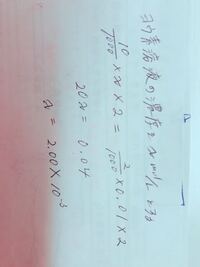 ヨウ素溶液の濃度を x mol/L とする
10/1000 × x × 2 = 2/1000 × 0.01 × 2
20x = 0.04
x = 2.00 × 10⁻³